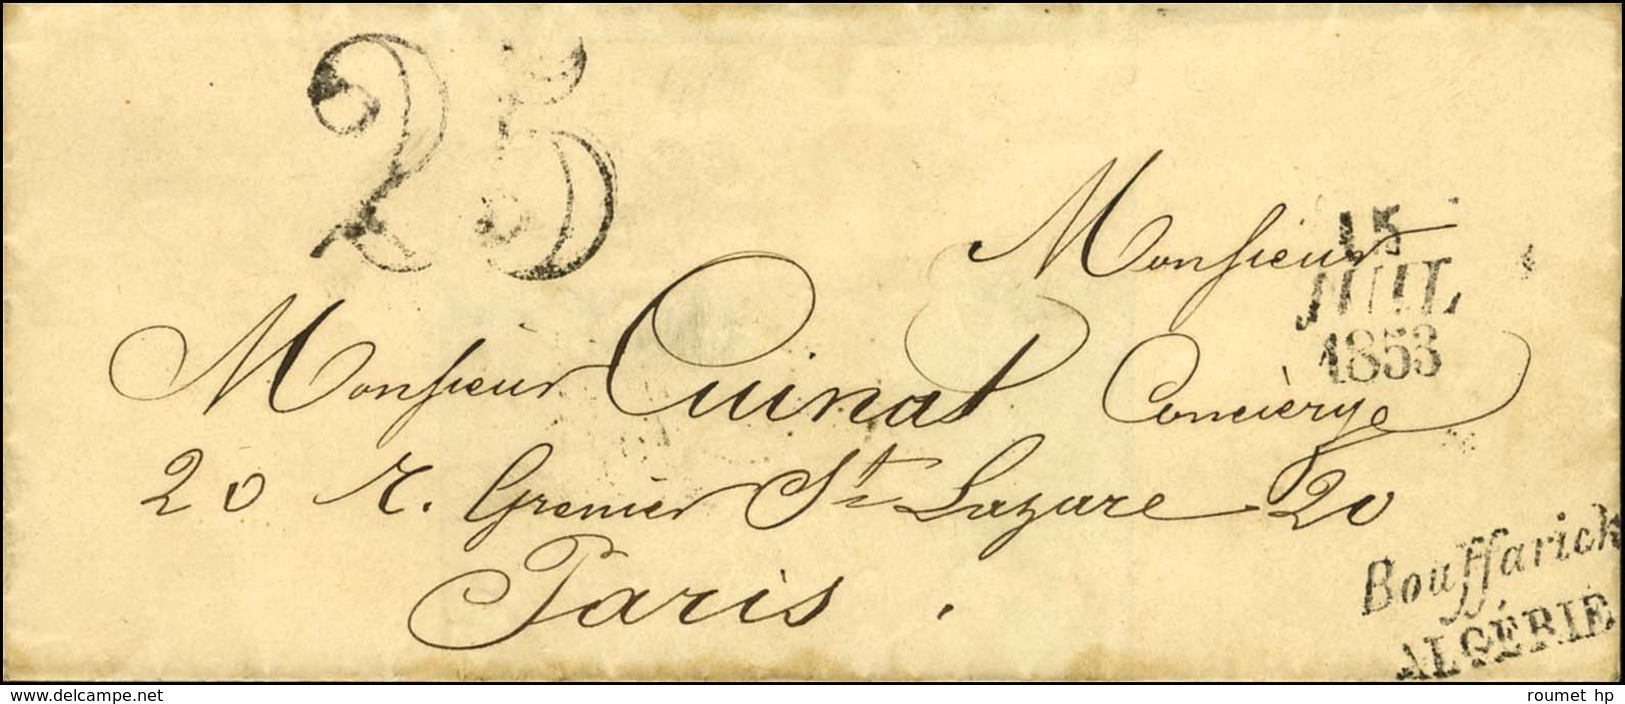 25
Monsieur
15
JUIL
1853
Monsieur Cuinat Concièrge
20 r. Grenier St. Lazare 20
Paris.
Bouffarick
ALGÉRIE
delcampe.net
roumet hp